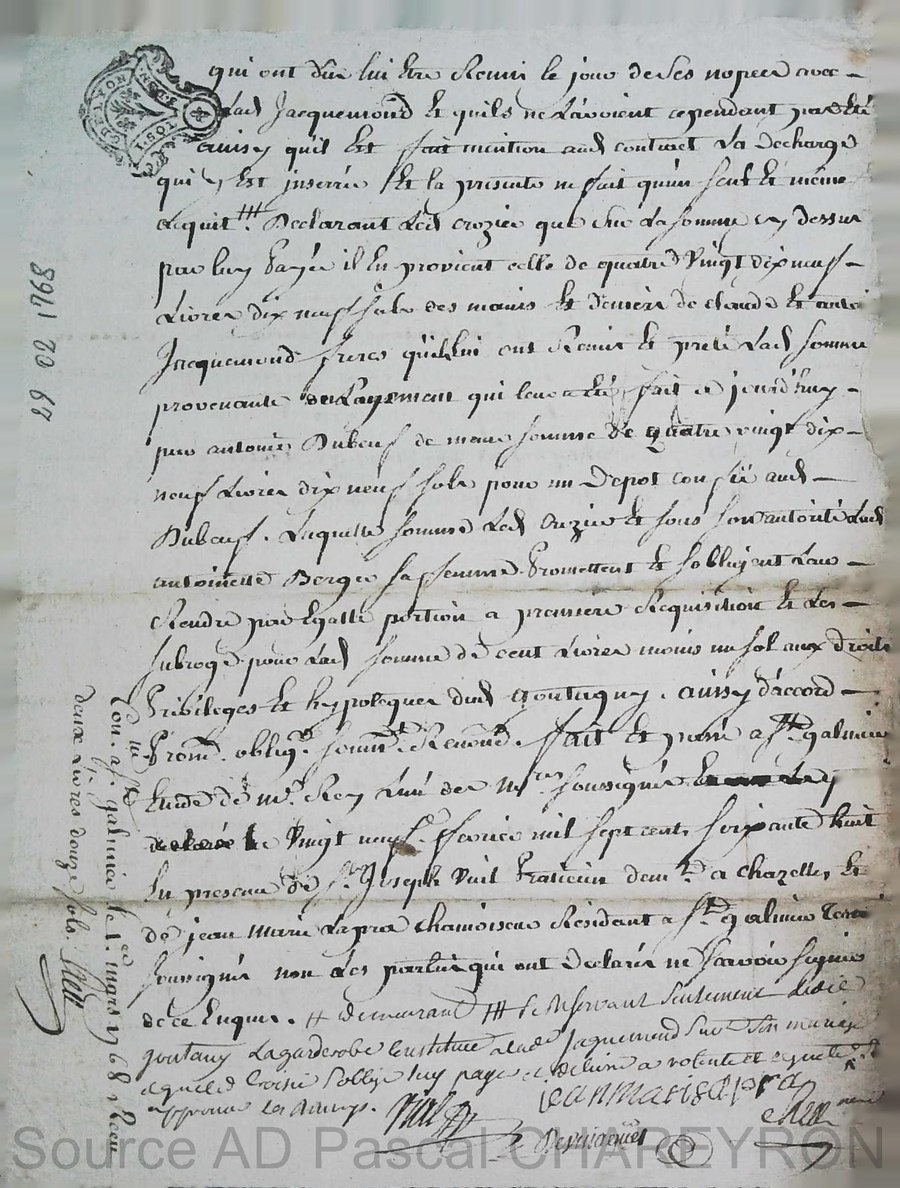 qui ont du lui être Remis le jour de ses nopces avec
Lad Jacquemond Et quils ne L'avoient cependant pas Eté
ainsy quil Est fait mention aud contract La decharge
qui y Est inserrée Et la presente ne fait qu'un seul Et même
acquit. Declarant Led crozier que sur La somme cy dessus
par luy payée il En provient celle de quatre Vingt dix neuf
Livres dix neuf sols des mains Et deniers de claude Et antoi
Jacquemond freres qu'ils lui ont Remis Et prêté Lad somme
provenante de Payement qui leur a Eté fait ce jourd'huy
par antoine Dubeuf de meme somme de quatre vingt dix
neuf Livres dix neuf sols pour un Depot confié aud
Dubeuf. Laquelle somme Led Crozier Et sous son autorité Lad
antoinette Berger sa femme Promettent Et s'obligent Leur
Rendre par Egalle portion a premiere Requisition Et Les
subroge pour Lad somme de cent Livres moins un sol aux droits
Privileges Et hypoteques dud gontagny. ainsy d'accord
Prom. oblig. soum. Renond. fait Et passé a St galmier
Etude de Mr. Rey L'un des nres soussignés
le Vingt neuf fevrier mil sept cent soixante huit
En presence de Sr Joseph Vial Praticien demt a chazelles Et
de jean Marie Lapra Chamoiseur Residant a St galmier
soussignés non Les parties qui ont declaré ne savoir signer
de ce Enquis. demeurant se Reservant seulement
gontany La garderobe constituée a lade Jaquemond
s'oblige luy payer et delivrer a volonté et
approuvé Les Renvoys. Vial jean marie lapra
Rey
Con. a St galmier le 1er mars 1768 Reçu
deux Livres douze sols. Rey
29 02 1768
Source AD Pascal CHAREYRON